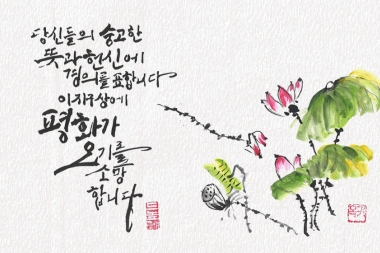 당신들의 숭고한
뜻과 헌신에
경의를 표합니다
이 지구상에
평화가
오기를
소망
합니다